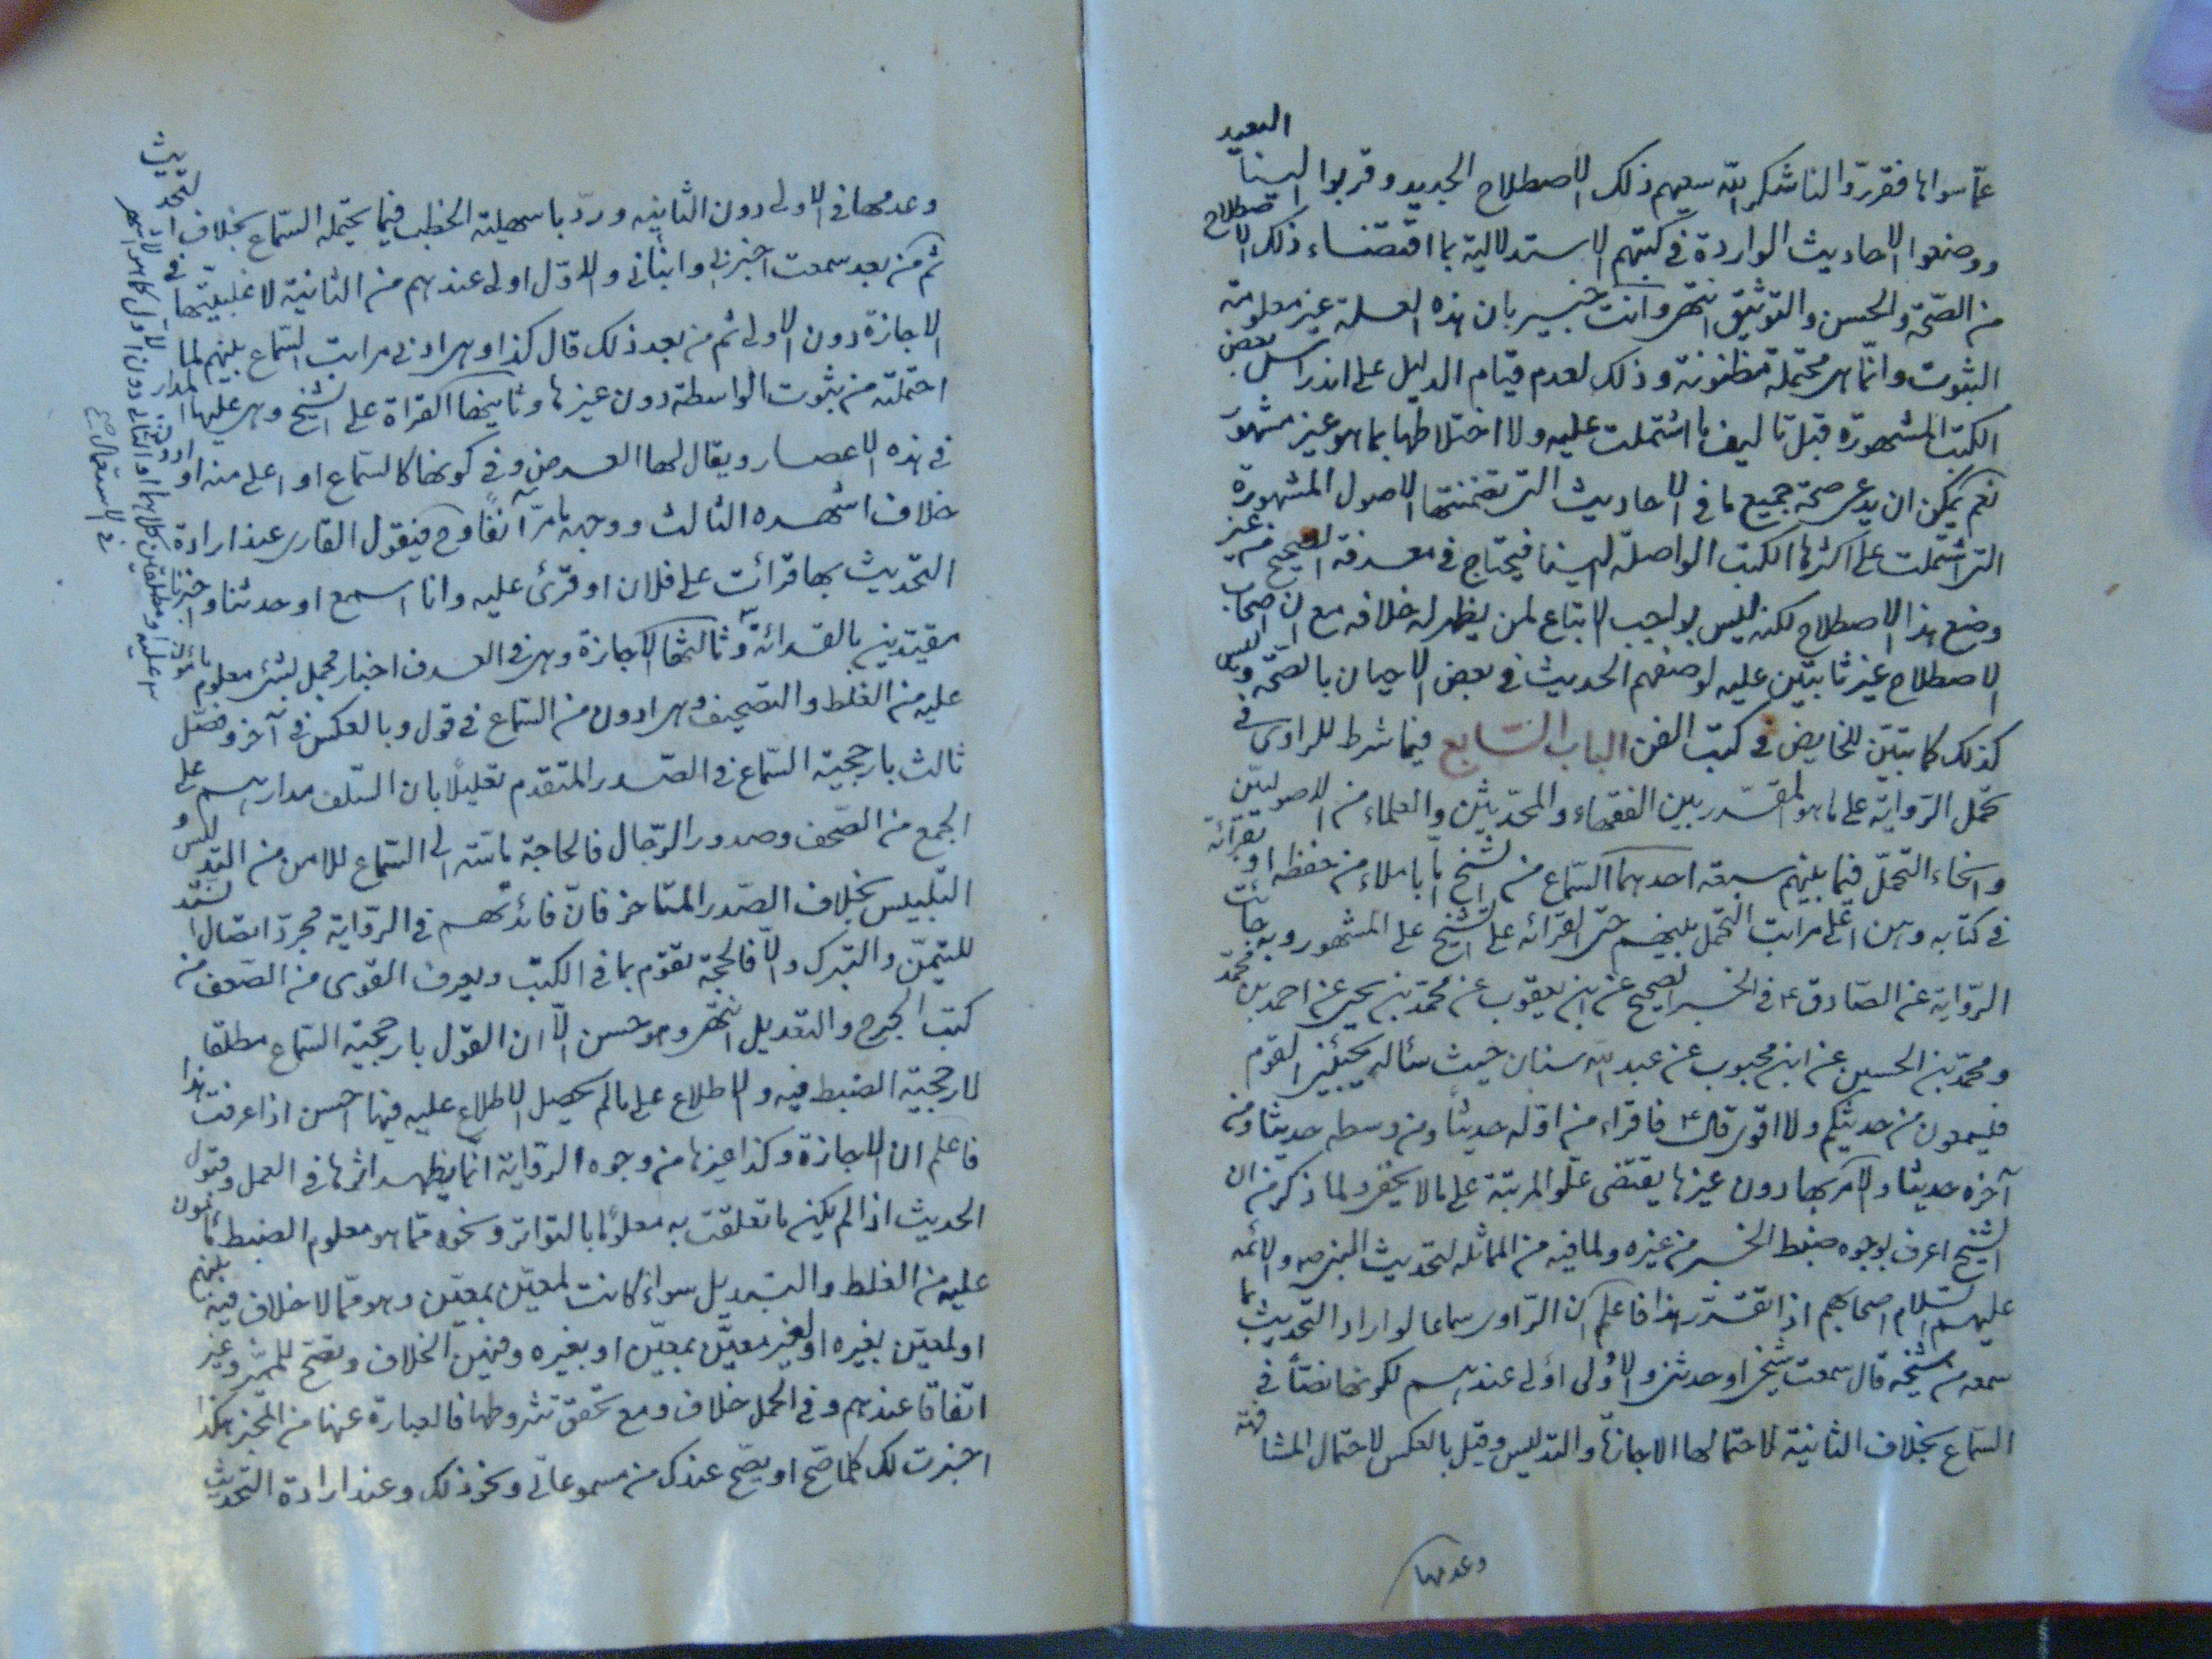 عمّا سواها فقرّروا لنا شكر الله سعيهم ذلك الاصطلاح الجديد وقربوا الينا البعيد
ووصفوا الاحاديث الواردة في كتبهم الاستدلالية بما اقتضاه ذلك الاصطلاح
من الصّحّة والحسن والتوثيق انتهى وانت خبير بان هذه العلة غير معلومة
الثبوت وانّما هي محتملة مظنونة وذلك لعدم قيام الدليل على اندراس بعض
الكتب المشهورة قبل تاليف ما اشتملت عليه ولا اختلاطها بما هو غير مشهور
نعم يمكن ان يدعى صحة جميع ما في الاحاديث التي تضمنتها الاصول المشهورة
التي اشتملت على اكثرها الكتب الواصلة الينا فيحتاج في معرفة الصحيح من غير
وضع هذا الاصطلاح لكنه ليس بواجب الاتباع لمن يظهر له خلافه مع ان اصحاب
الاصطلاح غير ثابتين عليه لوصفهم الحديث في بعض الاحيان بالصّحّة وليس
كذلك كما تبيّن للخايض في كتب الفن الباب السّابع فيما شرط للراوى في
تحمّل الرّواية على ما هو المقرّر بين الفقهاء والمحدّثين والعلماء من الاصوليّين
وانحاء التّحمّل فيما بينهم سبعة احدهما السّماع من الشّيخ امّا باملاء من حفظه او بقراءة
في كتابه وهى اعلى مراتب التحمل بينهم حتى القرائه على الشّيخ على المشهور وبه جائت
الرّواية عن الصّادق ع في الخبر الصحيح عن ابن يعقوب عن محمّد بن يحيى عن احمد بن محمّد
ومحمّد بن الحسين عن ابن محبوب عن عبد الله سنان حيث سئاله يجيئنى القوم
فليسمعون من حديثكم ولا اقوى قال ع فاقراء من اوّله حديثًا ومن وسطه حديثا ومن
آخره حديثا والامر بها دون غيرها يقتضى علوّ المرتبة على ما لا يخفى ولما ذكر من ان
الشّيخ اعرف بوجوه ضبط الخبر من غيره ولما فيه من المماثله لتحديث النبى ص والائمه
عليهم السّلام اصحابهم اذا تقرّر هذا فاعلم ان الرّاوى سماعا لو اراد التّحديث بما
سمعه من شيخه قال سمعت شيخى او حدثنى والاُولى اولى عندهم لكونها نصّاً في
السّماع بخلاف الثانية لاحتمالها الاجازة والتدليس وقيل بالعكس لاحتمال المشافهة
وعدمها
وعدمها في الاولى دون الثانيه وردّ باسهلية الخطب فيما يحتمله السّماع بخلاف التحديث
ثم من بعد سمعت اخبرنى وانبأنى والاوّل اولى عندهم من الثانية لاغلبيّتها في
الاجازة دون الاولى ثم من بعد ذلك قال كذا وهى ادنى مراتب السّماع بينهم لما
احتملته من ثبوت الواسطة دون غيرها وثانيها القراة على الشّيخ وهى عليها المدار
في هذه الاعصار ويقال لها العرض وفي كونها كالسّماع او اعلى منه او ادون
خلاف اشهره الثالث ووجهه ما مرّ آنفًا وح فيقول القارى عند ارادة
التحديث بها قرائت على فلان او قرئ عليه وانا اسمع او حدثنا واخبرنا
مقيّدين بالقرائة وثالثها الاجازة وهى في العرف اخبار مجمل بشئ معلوم مأمون
عليه من الغلط والتصحيف وهى ادون من السّماع في قول وبالعكس في آخر وفصّل
ثالث بارجحية السّماع في الصّدر المتقدم تعليلًا بان السّلف مدارهم على
الجمع من الصّحف وصدور الرّجال فالحاجة ماسّة الى السّماع للامن من التدليس و
التّلبيس بخلاف الصّدر المتاخر فانّ فائدتهم في الرّواية مجردّ اتصال السّند
للتيمّن والتبرك والّا فالحجة تقوم بما في الكتب ويعرف القوى من الضّعف من
كتب الجرح والتعديل انتهى وهو حسن الّا ان القول بارجحيّة السّماع مطلقا
لارجحيّة الضبط فيه والاطلاع على ما لم يحصل الاطلاع عليه فيها احسن اذا عرفت هذا
فاعلم ان الاجازة وكذا غيرها من وجوه الرّواية انّما يظهر اثرها في العمل وقبول
الحديث اذا لم يكن ما تعلقت به معلومًا بالتواتر ونحوه ممّا هو معلوم الضبط مأمون
عليه من الغلط والتبديل سواء كانت لمعيّن بمعيّن وهو ممّا لا خلاف فيه بينهم
او لمعيّن بغيره او لغير معيّن بمعيّن او بغيره وفيهن الخلاف وتصّح للمميّز وغير
اتفاقا عندهم وفى الحمل خلاف ومع تحقق شروطها فالعبارة عنها من المجيز هكذا
اخبرت لك كلما صّح او يصّح عندك من مسموعاتى ونحو ذلك وعند ارادة التّحديث